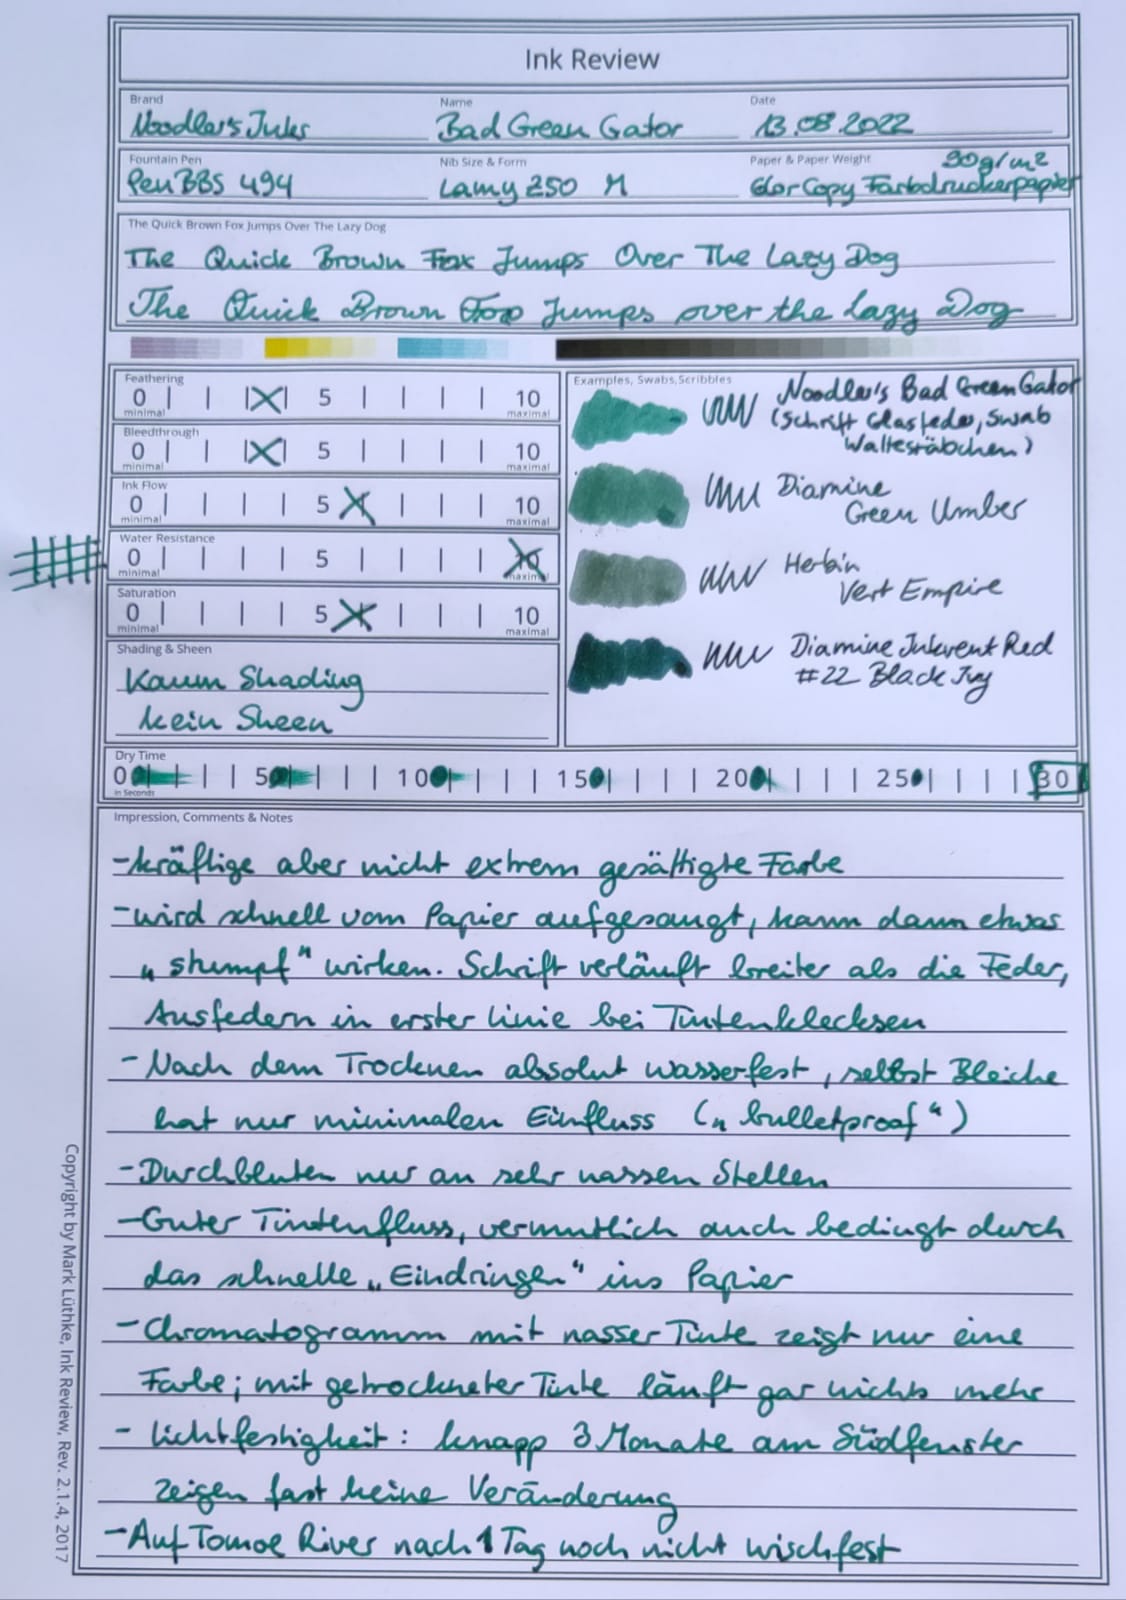 Ink Review
Brand
Name
Date
Noodler's Inks
Bad Green Gator
13.08.2022
Fountain Pen
Nib Size & Form
Paper & Paper Weight
90g/m²
PenBBS 494
Lamy Z50 M
Color Copy Farbdruckerpapier
The Quick Brown Fox Jumps Over The Lazy Dog
The Quick Brown Fox Jumps Over The Lazy Dog
The Quick Brown Fox Jumps over the Lazy Dog
Feathering
0 5 10
minimal maximal
Bleedthrough
0 5 10
minimal maximal
Ink Flow
0 5 10
minimal maximal
Water Resistance
0 5 10
minimal maximal
Saturation
0 5 10
minimal maximal
Shading & Sheen
Kaum Shading
kein Sheen
Examples, Swabs,Scribbles
Noodler's Bad Green Gator
(Schrift Glasfeder, Swab
Wattestäbchen)
Diamine
Green Umber
Herbin
Vert Empire
Diamine Inkvent Red
#22 Black Ivy
Dry Time
0 5 10 15 20 25 30
in Seconds
Impression, Comments & Notes
- kräftige aber nicht extrem gesättigte Farbe
- wird schnell vom Papier aufgesaugt, kann dann etwas
„stumpf" wirken. Schrift verläuft breiter als die Feder,
Ausfedern in erster Linie bei Tintenklecksen
- Nach dem Trocknen absolut wasserfest, selbst Bleiche
hat nur minimalen Einfluss („bulletproof")
- Durchbluten nur an sehr nassen Stellen
- Guter Tintenfluss, vermutlich auch bedingt durch
das schnelle „Eindringen" ins Papier
- Chromatogramm mit nasser Tinte zeigt nur eine
Farbe; mit getrockneter Tinte läuft gar nichts mehr
- Lichtfestigkeit: knapp 3 Monate am Südfenster
zeigen fast keine Veränderung
- Auf Tomoe River nach 1 Tag noch nicht wischfest
Copyright by Mark Lüthke, Ink Review, Rev. 2.1.4, 2017